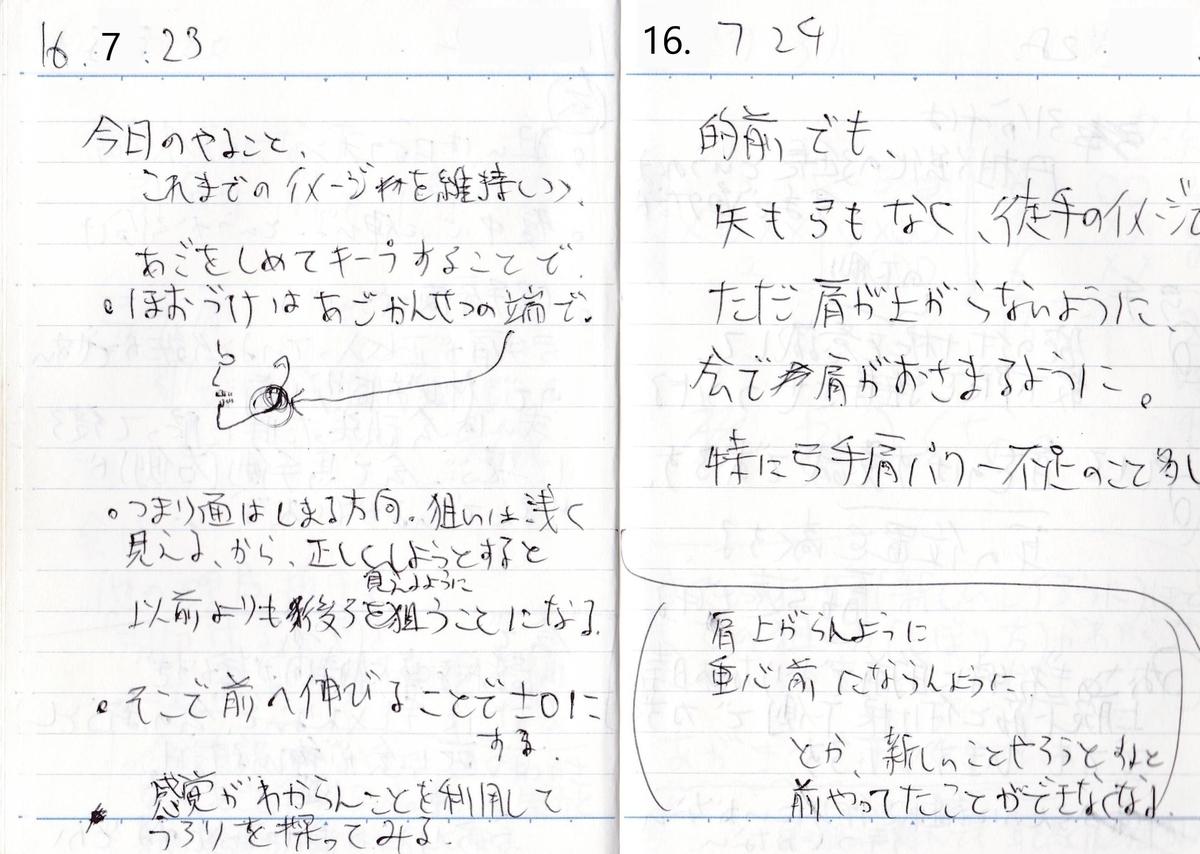 16.7.23
今日のやること、
これまでのイメージを維持しつつ、
あごをしめてキープすることで、
。ほおづけはあごかんせつの端で。
。つまり通はしまる方向。狙いは浅く
見える、から、正しくしようとすると
見えるように
以前よりも後ろを狙うことになる。
。そこで前へ伸びることで±0に
する。
感覚がわからんことを利用して
うろりを探ってみる。
16. 7 24
的前でも、
矢も弓もなく、徒手のイメージで
ただ肩が上がらないように、
会で肩がおさまるように。
特に弓手肩パワー不足のこと多し
肩上がらんように
重心前にならんように
とか、新しいことやろうとすると
前やってたことができなくなる。